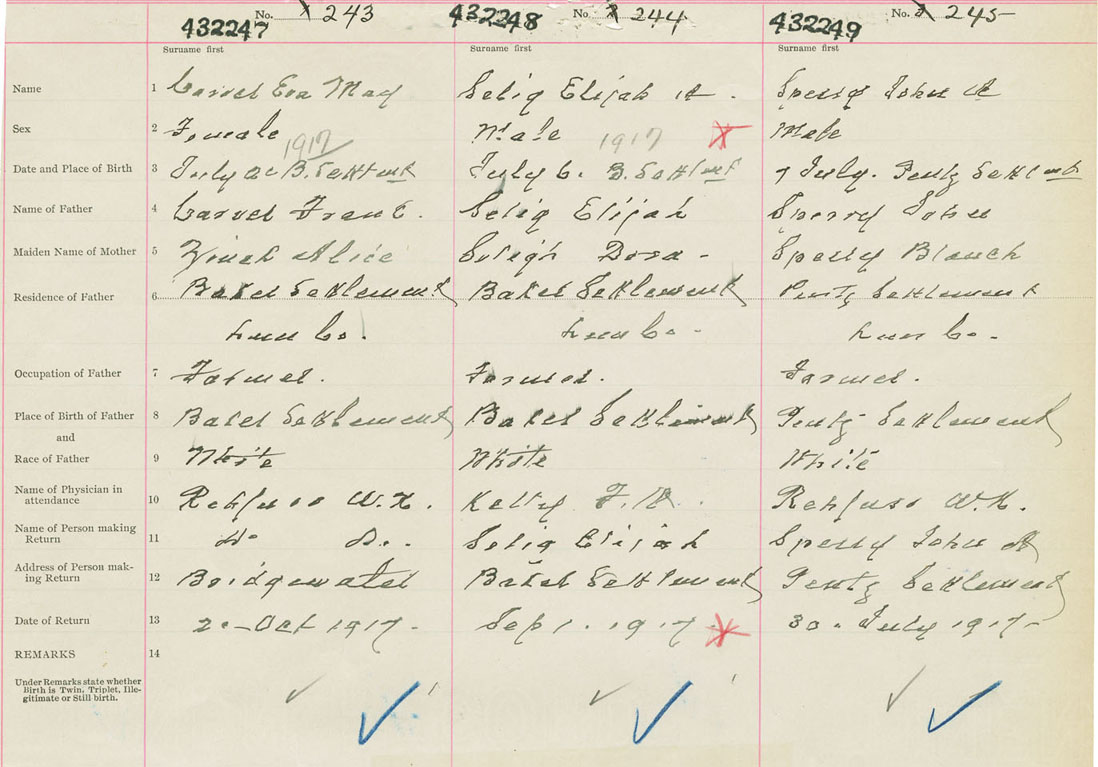 No. 243
432247
Surname first
No. 244
432248
Surname first
No. 245
432249
Surname first
Name 1 Eva May
Selig Elijah A.
Sperry John A
Sex 2 Female
Male
Male
1917
1917
Date and Place of Birth 3 July B. Settlmt
July 6. B. Settlmt
7 July. Pentz Settlmt
Name of Father 4
Selig Elijah
Sperry John
Maiden Name of Mother 5 Alice
Dora
Sperry Blanch
Residence of Father 6 Baker Settlement
Baker Settlement
Pentz Settlement
Lun Co.
Lun Co.
Lun Co.
Occupation of Father 7 Farmer.
Farmer.
Farmer.
Place of Birth of Father 8 Baker Settlement
Baker Settlement
Pentz Settlement
and
Race of Father 9 White
White
White
Name of Physician in
attendance 10 Rehfuss W.K.
Kelly
Rehfuss W.K.
Name of Person making
Return 11 Do Do.
Selig Elijah
Sperry John A
Address of Person mak-
ing Return 12 Bridgewater
Baker Settlement
Pentz Settlement
Date of Return 13 Oct 1917
Sep 1. 1917
30. July 1917
REMARKS 14
Under Remarks state whether
Birth is Twin, Triplet, Ille-
gitimate or Still-birth.